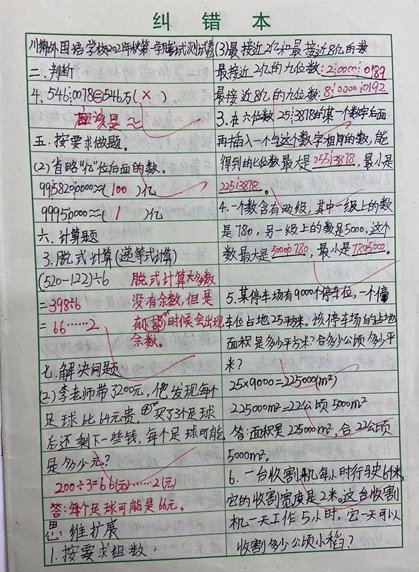 纠错本
川绵外国语学校2021年秋第一学期考试测试卷
二、判断
4. 546┆0078≈546万(×)
应该是≈
五、按要求做题。
(2)省略"亿"位后面的数。
9958200000≈(100)亿
99950000≈(1)亿
六、计算题
3. 脱式计算(递等式计算)
(520-122)÷6 脱式计算大多数
=398÷6 没有余数,但是
=66……2 有时候会出现
余数。
七、解决问题
(2)李老师带了200元,他发现每个
足球比64元贵,买了3个足球
后还剩下一些钱,每个足球可能
是多少元?
200÷3=66(元)……2(元)
答:每个足球可能是66元。
思维扩展
1. 按要求组数:
(3)最接近2亿和最接近8亿的数
最接近2亿的九位数:2┆0000┆0189
最接近8亿的九位数:8┆0000┆0192
3. 在六位数25┆3878的某一个数字后面
再插入一个与这个数字相同的数,能
得到的七位数最大是255┆3878,最小是
225┆3878。
4. 一个数含有两级,其中一级上的数
是780,另一级上的数是5000,这个
数最大是5000┆0780,最小是7805000。
5. 某停车场有9000个停车位,一个停
车位占地25平方米。该停车场的占地
面积是多少平方米?合多少公顷多少平
米?
25×9000=225000(m²)
225000m²=22公顷5000m²
答:面积是225000m²,合22公顷
5000m²。
6. 一台收割机每小时行驶6千米,
它的收割宽度是2米。这台收割
机一天工作5小时,它一天可以
收割多少公顷小稻?